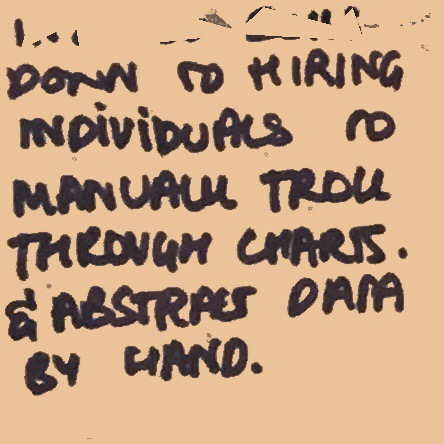 DOWN TO HIRING
INDIVIDUALS TO
MANUALLY TROLL
THROUGH CHARTS.
& ABSTRACT DATA
BY HAND.